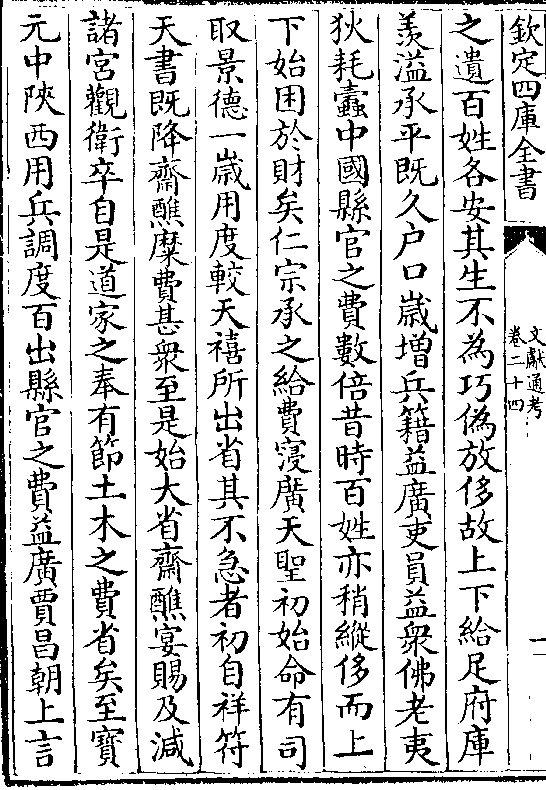 欽定四庫全書
文獻通考
卷二十四
一
之遺百姓各安其生不為巧偽放侈故上下給足府庫
羨溢承平既久户口嵗增兵籍益廣吏員益衆佛老夷
狄耗蠧中國縣官之費數倍昔時百姓亦稍縱侈而上
下始困於財矣仁宗承之給費寖廣天聖初始命有司
取景德一嵗用度較天禧所出省其不急者初自祥符
天書既降齋醮糜費甚衆至是始大省齋醮宴賜及減
諸宮觀衛卒自是道家之奉有節土木之費省矣至寶
元中陜西用兵調度百出縣官之費益廣賈昌朝上言